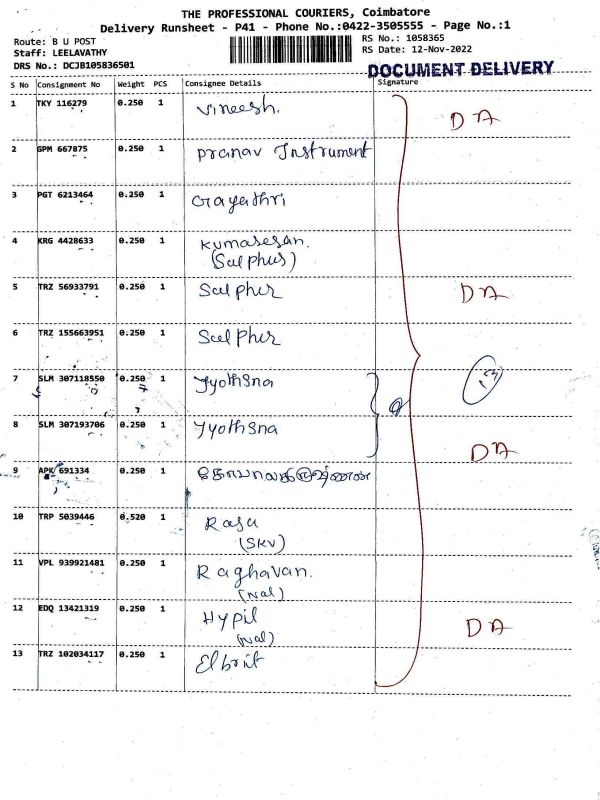 THE PROFESSIONAL COURIERS, Coimbatore
Delivery Runsheet - P41 - Phone No.:0422-3505555 - Page No.:1
Route: B U POST
RS No.: 1058365
Staff: LEELAVATHY
RS Date: 12-Nov-2022
DRS No.: DCJB105836501
DOCUMENT DELIVERY
S No Consignment No Weight PCS Consignee Details Signature
1 TKY 116279 0.250 1 Vineesh.
DA
2 GPM 667875 0.250 1 Pranav Instrument
3 PGT 6213464 0.250 1 Gayathri
4 KRG 4428633 0.250 1 Kumaresan.
(Sulphur)
5 TRZ 56933791 0.250 1 Sulphur DA
6 TRZ 155663951 0.250 1 Sulphur
7 SLM 307118550 0.250 1 Jyothsna
13
8 SLM 307193706 0.250 1 Jyothsna
DA
9 APK 691334 0.250 1
10 TRP 5039446 0.520 1 Rasu
(SKV)
11 VPL 939921481 0.250 1 Raghavan.
(Nal)
12 EDQ 13421319 0.250 1 Hypil
(Nal)
DA
13 TRZ 102034117 0.250 1 Elbrit